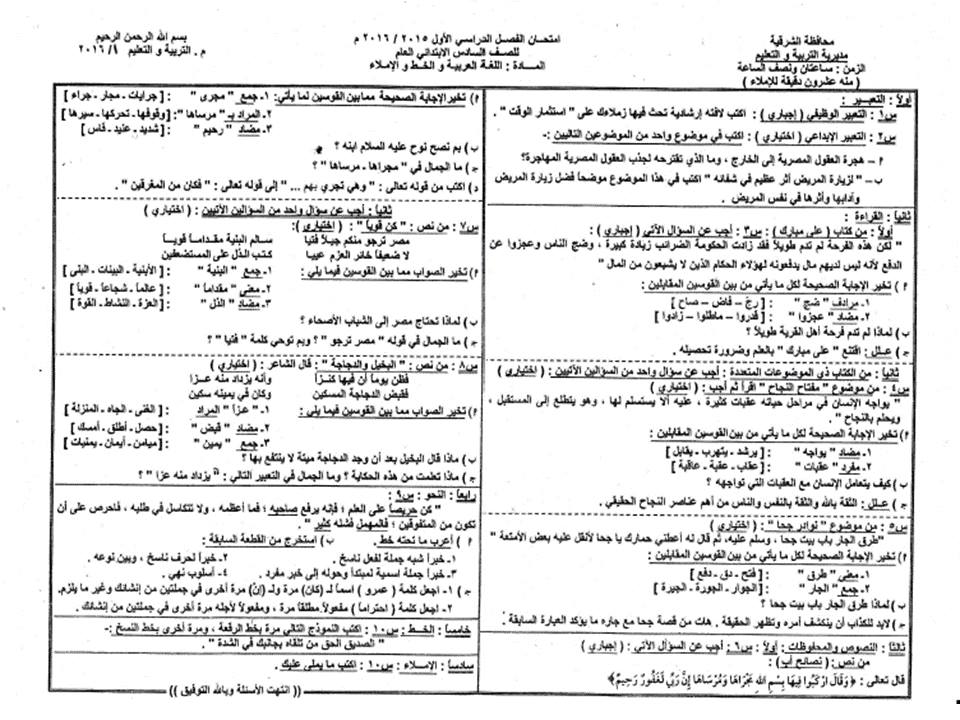 محافظة الشرقية
مديرية التربية و التعليم
الزمن : ساعتان ونصف الساعة
( منه عشرون دقيقة للإملاء )
امتحان الفصل الدراسي الأول ٢٠١٥ / ٢٠١٦ م
للصف السادس الابتدائي العام
المـــادة : اللغة العربية و الخط و الإملاء
بسم الله الرحمن الرحيم
م . التربية و التعليم ١/ ٢٠١٦
أولاً : التعبيـــر :
س١ : التعبير الوظيفي ( إجباري ) : اكتب لافتة إرشادية تحث فيها زملاءك على " استثمار الوقت " .
س٢ : التعبير الإبداعي ( اختياري ) : اكتب في موضوع واحد من الموضوعين التاليين :-
أ – هجرة العقول المصرية إلى الخارج ، وما الذي تقترحه لجذب العقول المصرية المهاجرة؟
ب – " لزيارة المريض أثر عظيم في شفائه " اكتب في هذا الموضوع موضحاً فضل زيارة المريض
وآدابها وأثرها في نفس المريض .
ثانياً : القراءة :
أولاً : من كتاب ( على مبارك ) : س٣ : أجب عن السؤال الآتي ( إجباري ) :
" لكن هذه الفرحة لم تدم طويلاً فقد زادت الحكومة الضرائب زيادة كبيرة ، وضج الناس وعجزوا عن
الدفع لأنه ليس لديهم مال يدفعونه لهؤلاء الحكام الذين لا يشبعون من المال "
أ ) تخير الإجابة الصحيحة لكل ما يأتي من بين القوسين المقابلين :
١- مرادف " ضج " : [ رجّ – فاض – صاح ]
٢- مضاد " عجزوا " : [ قدروا – ماطلوا – زادوا ]
ب) لماذا لم تدم فرحة أهل القرية طويلاً ؟
ج) علــل : اقتنع " على مبارك " بالعلم وضرورة تحصيله .
ثانياً : من الكتاب ذي الموضوعات المتعددة : أجب عن سؤال واحد من السؤالين الآتيين : ( اختياري )
س٤ : من موضوع " مفتاح النجاح " اقرأ ثم أجب : ( اختياري )
" يواجه الإنسان في مراحل حياته عقبات كثيرة ، عليه ألا يستسلم لها ، وهو يتطلع إلى المستقبل ،
ويحلم بالنجاح "
أ) تخير الإجابة الصحيحة لكل ما يأتي من بين القوسين المقابلين :
١- مضاد " يواجه " : [ يرشد – يتهرب – يقابل ]
٢- مفرد " عقبات " : [ عقاب – عقبة – عاقبة ]
ب) كيف يتعامل الإنسان مع العقبات التي تواجهه ؟
ج) علــل : الثقة بالله والثقة بالنفس والناس من أهم عناصر النجاح الحقيقي .
س٥ : من موضوع " نوادر جحا " : ( اختياري )
"طرق الجار باب بيت جحا ، وسلم عليه، ثم قال له أعطني حمارك يا جحا لأنقل عليه بعض الأمتعة "
أ) تخير الإجابة الصحيحة لكل ما يأتي من بين القوسين المقابلين :
١- معنى " طرق " : [ فتح – دق – دفع ]
٢- جمع " الجار " : [ الجوار – الجورة – الجيرة ]
ب) لماذا طرق الجار باب بيت جحا ؟
ج) لابد للكذاب أن ينكشف أمره وتظهر الحقيقة . هات من قصة جحا مع جاره ما يؤكد العبارة السابقة .
ثالثاً : النصوص والمحفوظات : أولاً : س٦ : أجب عن السؤال الآتي : ( إجباري )
من نص : ( نصائح أب) :
قال تعالى : ﴿وَقَالَ ارْكَبُوا فِيهَا بِسْمِ اللهِ مَجْرَاهَا وَمُرْسَاهَا إِنَّ رَبِّي لَغَفُورٌ رَحِيمٌ﴾
أ) تخير الإجابة الصحيحة مما بين القوسين لما يأتي: ١- جمع " مجرى " : [ جرايات - مجار - جراء ]
٢- المراد بـ " مرساها ": [وقوفها - تحركها - سيرها ]
٣- مضاد " رحيم " : [ شديد - عنيد - قاس ]
ب) بم نصح نوح عليه السلام ابنه ؟
ج) ما الجمال في " مجراها ، مرساها " ؟
د) اكتب من قوله تعالى : " وهي تجري بهم ... " إلى قوله تعالى : " فكان من المغرقين " .
ثانياً : أجب عن سؤال واحد من السؤالين الآتيين : ( اختياري )
س٧ : من نص : " كن قوياً " : ( اختياري ) :
مصر ترجو منكم جيلاً فتيا سالم البنية مقداماً قوياً
لا ضعيفاً خائر العزم عيياً كتب الذل على المستضعفين
أ) تخير الصواب مما بين القوسين فيما يلي : ١- جمع " البنية " : [ الأبنية - البينات - البنى ]
٢- معنى " مقداماً " : [ عالماً - شجاعاً - قوياً ]
٣- مضاد " الذل " : [ العزة - النشاط - القوة ]
ب) لماذا تحتاج مصر إلى الشباب الأصحاء ؟
ج) ما الجمال في قوله " مصر ترجو " ؟ وبم توحي كلمة " فتيا " ؟
س٨ : من نص : " البخيل والدجاجة " : قال الشاعر : ( اختياري )
فظن يوماً أن فيها كنـزاً وأنه يزداد منه عـزا
فقبض الدجاجة المسكين وكان في يمينه سكين
أ) تخير الصواب مما بين القوسين فيما يلي : ١- " عزاً " المراد : [ الغنى - الجاه - المنزلة ]
٢- مضاد " قبض " : [ حصل - أطلق - أمسك ]
٣- جمع " يمين " : [ ميامن - أيمان - يمنيات ]
ب) ماذا قال البخيل بعد أن وجد الدجاجة ميتة لا ينتفع بها ؟
ج) ماذا تعلمت من هذه الحكاية ؟ وما الجمال في التعبير التالي : " يزداد منه عزا " ؟
رابعاً : النحو : س٩ :
" كن حريصاً على العلم ؛ فإنه يرفع صاحبه ؛ فما أعظمه ، ولا تتكاسل في طلبه ، فاحرص على أن
تكون من المتفوقين ؛ فالمهمل فشله كثير " .
أ ) أعرب ما تحته خط . ب ) استخرج من القطعة السابقة :
١- خبراً شبه جملة لفعل ناسخ . ٢- خبراً لحرف ناسخ ، وبين نوعه .
٣- خبراً جملة اسمية لمبتدأ وحوله إلى خبر مفرد . ٤- أسلوب نهي .
ج ) ١- اجعل كلمة ( عمرو ) اسماً لـ (كان) مرة ولـ (إن) مرة أخرى في جملتين من إنشائك وغير ما يلزم.
٢- اجعل كلمة ( احتراما ) مفعولاً مطلقاً مرة ، ومفعولاً لأجله مرة أخرى في جملتين من إنشائك .
خامساً : الخط : س١٠ : اكتب النموذج التالي مرة بخط الرقعة ، ومرة أخرى بخط النسخ :-
" الصديق الحق من تلقاه بجانبك في الشدة " .
سادساً : الإملاء : س١٠ : اكتب ما يملى عليك .
(( انتهت الأسئلة وبالله التوفيق ))